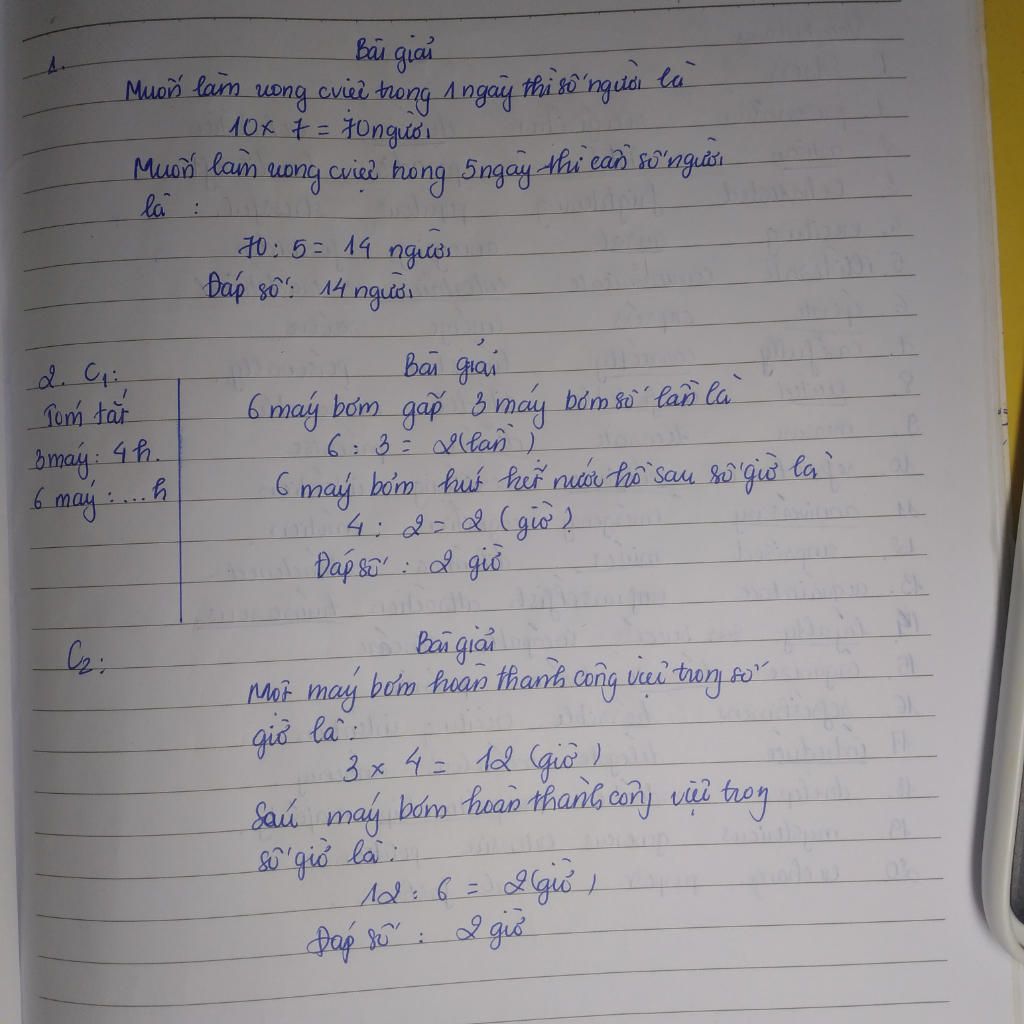 1. Bài giải
Muốn làm xong cviệc trong 1 ngày thì số người là
10 x 7 = 70 người
Muốn làm xong cviệc trong 5 ngày thì cần số người
là :
70 : 5 = 14 người
Đáp số : 14 người
2. C1: Bài giải
Tóm tắt
6 máy bơm gấp 3 máy bơm số lần là
3 máy : 4 h.
6 : 3 = 2 (lần)
6 máy : ... h
6 máy bơm hút hết nước hồ sau số giờ là
4 : 2 = 2 (giờ)
Đáp số : 2 giờ
C2: Bài giải
Một máy bơm hoàn thành công việc trong số
giờ là :
3 x 4 = 12 (giờ)
Sáu máy bơm hoàn thành công việc trong
số giờ là :
12 : 6 = 2 (giờ)
Đáp số : 2 giờ